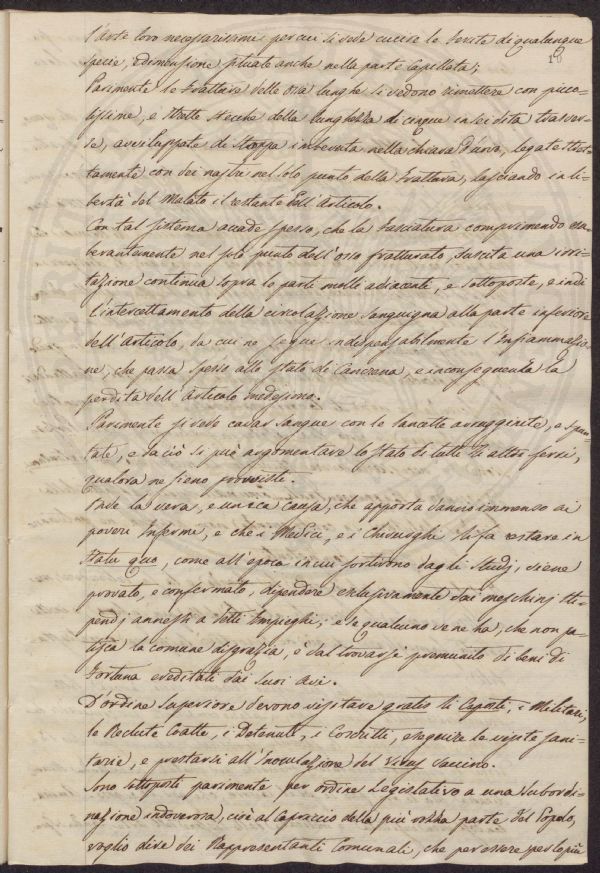 l'arte loro necessarissimi per cui si vede cucire le ferite di qualunque
specie, e dimensione situate anche nella parte Capillata;
10
Parimente le fratture delle ossa lunghe si vedono rimettere con picco-
lissime, e strette stecche della lunghezza di cinque in sei dita trasver-
se, avviluppate di stoppa imbevuta nella chiara d'uovo, legate stret-
tamente con dei nastri nel solo punto della frattura, lasciando in li-
bertà del Malato il restante dell'articolo.
Con tal sistema accade spesso, che la fasciatura comprimendo esu-
berantemente nel solo punto dell'osso fratturato, suscita una irri-
tazione continua sopra le parti molli adiacenti, e sottoposte, e indi
l'intercettamento della circolazione sanguigna alla parte inferiore
dell'articolo, da cui ne segue indispensabilmente l'Infiammazio-
ne, che passa spesso allo stato di Cancrena, e in conseguenza la
perdita dell'articolo medesimo.
Parimente si vede cavar sangue con le lancette arrugginite, e spun-
tate, e da ciò si può argomentare lo stato di tutti li altri ferri,
qualora ne sieno provviste.
Onde la vera, e unica causa, che apporta danno immenso ai
poveri Infermi, e che i Medici, e i Chirurghi li fa restare in
statu quo, come all'epoca in cui sortirono dagli Studj, viene
provato, e confermato, dipendere esclusivamente dai meschinj sti-
pendj annessi a detti Impieghi; e se qualcuno ve ne ha, che non pa-
tisca la comune disgrazia, è dal trovarsi premunito di beni di
fortuna ereditati dai suoi Avi.
D'ordine Superiore devono visitare gratis li Esposti, i Militari,
le Reclute Coatte, i Detenuti, i Coscritti, eseguire le visite sani-
tarie, e prestarsi all'Inoculazione del virus vaccino.
Sono sottoposti parimente per ordine Legislativo a una subordi-
nazione indoverosa, cioè al Capriccio della più rozza parte del Popolo,
voglio dire dei Rappresentanti Comunali, che per essere per lo più